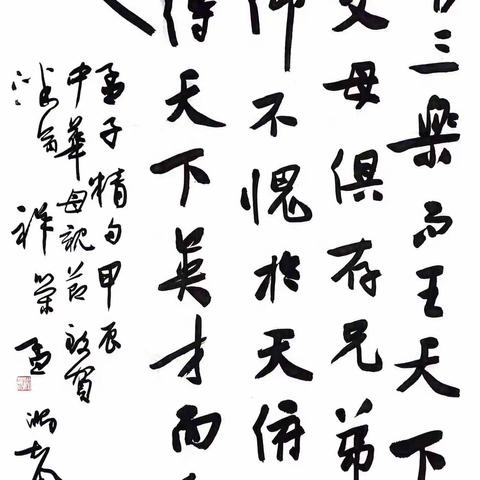 三樂而王天下
父母俱存兄弟
仰不愧於天俯
得天下英才而
孟子精句甲辰
中華母親節敬賀
祥榮孟